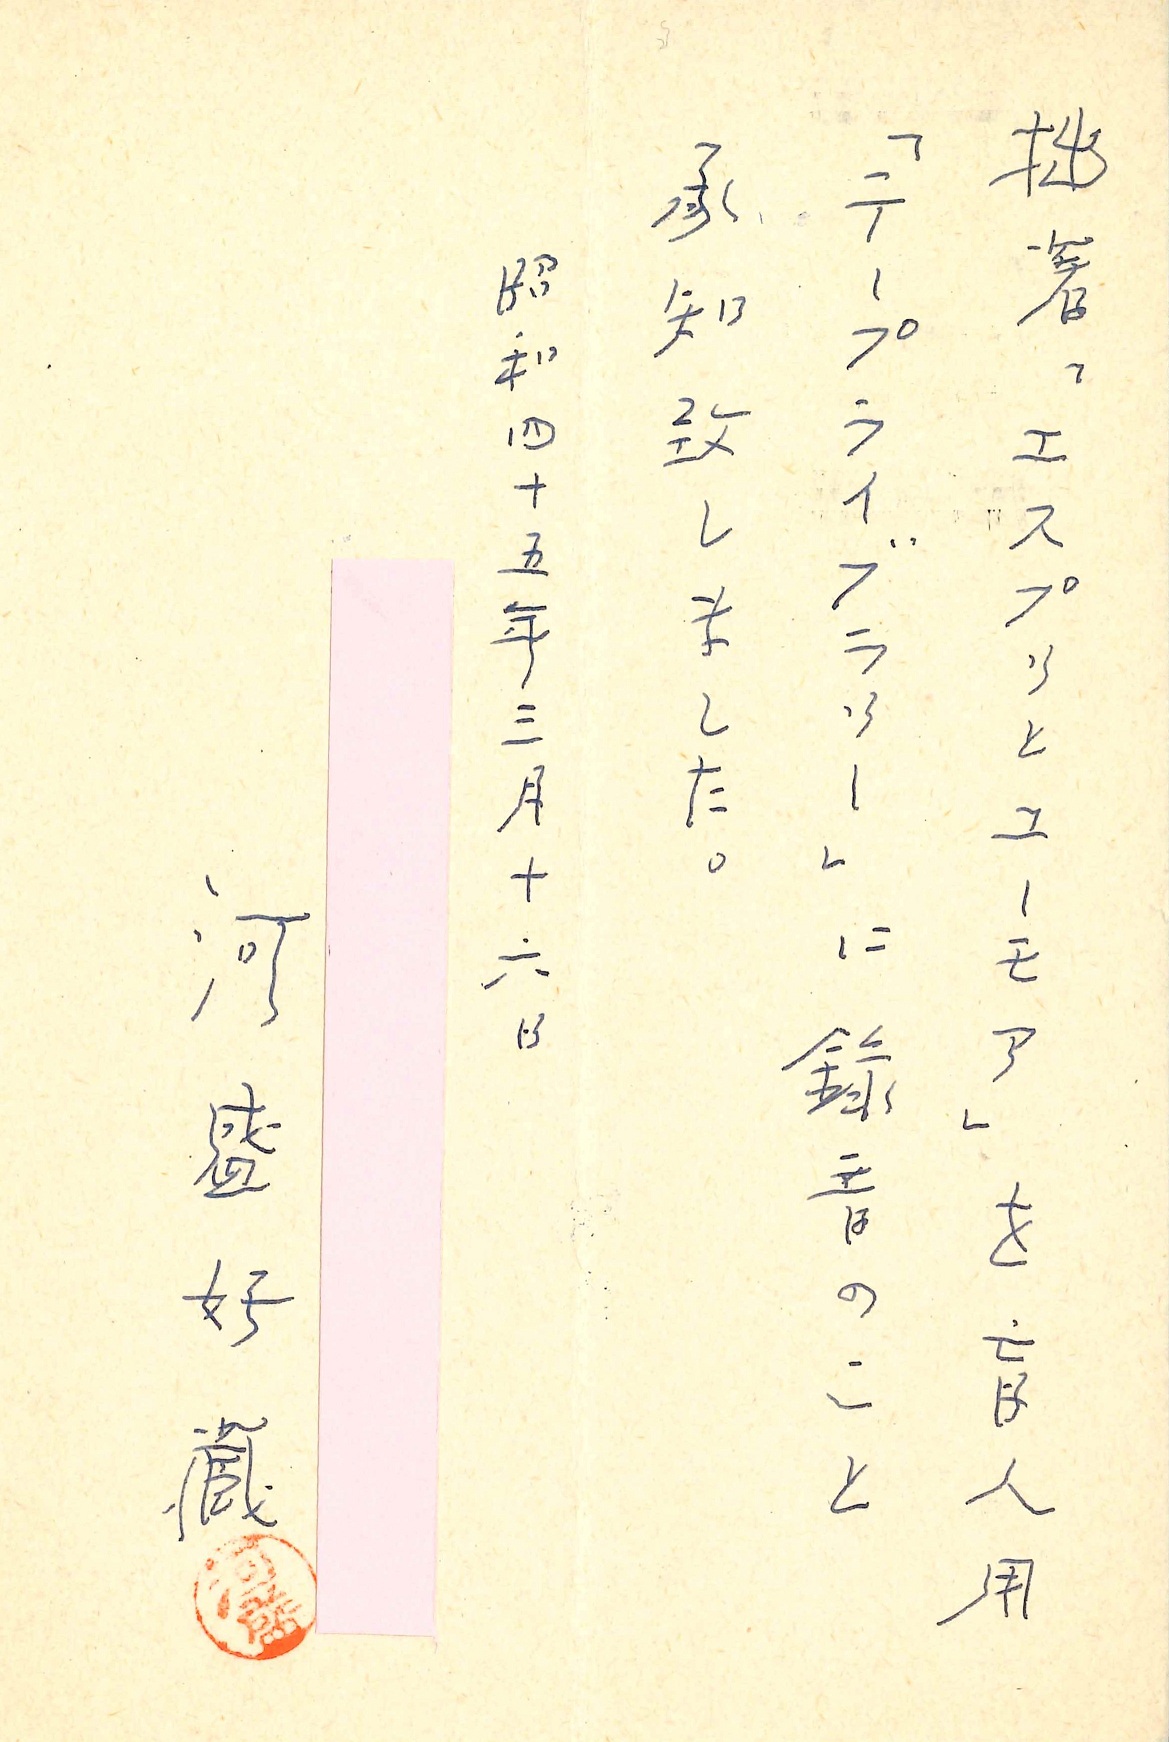 拙著「エスプリとユーモア」を盲人用
「テープライブラリー」に録音のこと
承知致しました。
昭和四十五年三月十六日
河盛好蔵